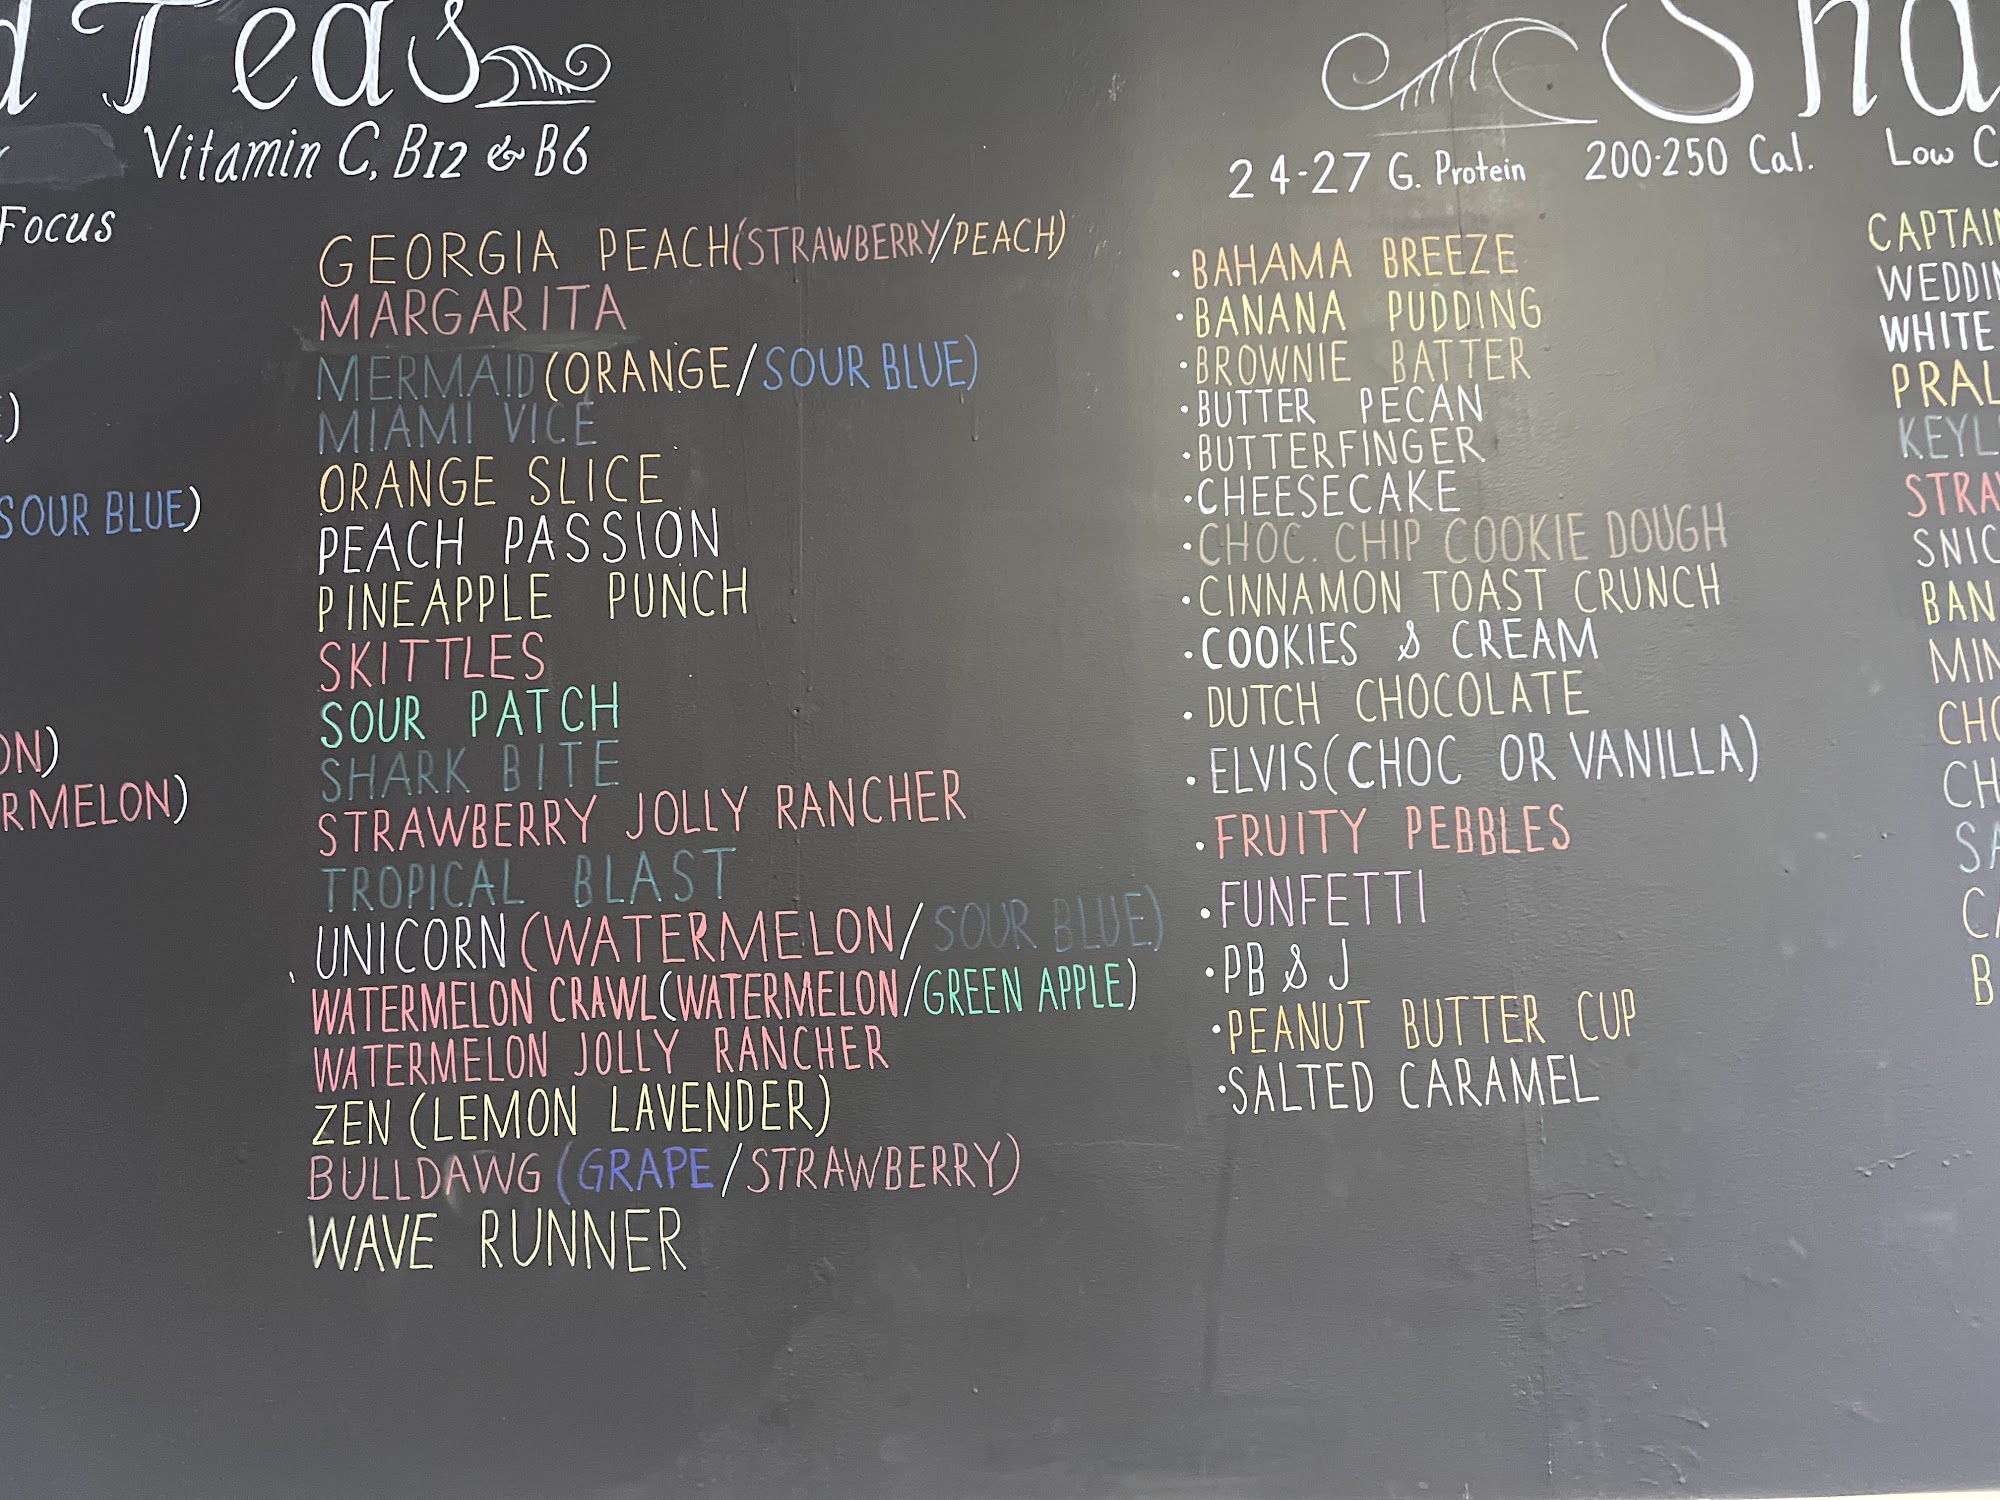 Teas
Vitamin C, B12 & B6
Focus
GEORGIA PEACH(STRAWBERRY/PEACH)
MARGARITA
MERMAID(ORANGE/SOUR BLUE)
MIAMI VICE
ORANGE SLICE
SOUR BLUE)
PEACH PASSION
PINEAPPLE PUNCH
SKITTLES
SOUR PATCH
SHARK BITE
STRAWBERRY JOLLY RANCHER
TROPICAL BLAST
UNICORN(WATERMELON/SOUR BLUE)
WATERMELON CRAWL(WATERMELON/GREEN APPLE)
WATERMELON JOLLY RANCHER
ZEN (LEMON LAVENDER)
BULLDAWG (GRAPE/STRAWBERRY)
WAVE RUNNER
24-27 G. Protein 200-250 Cal. Low
• BAHAMA BREEZE
• BANANA PUDDING
• BROWNIE BATTER
• BUTTER PECAN
• BUTTERFINGER
• CHEESECAKE
• CHOC. CHIP COOKIE DOUGH
• CINNAMON TOAST CRUNCH
• COOKIES & CREAM
• DUTCH CHOCOLATE
• ELVIS(CHOC OR VANILLA)
• FRUITY PEBBLES
• FUNFETTI
• PB & J
• PEANUT BUTTER CUP
• SALTED CARAMEL
WHITE